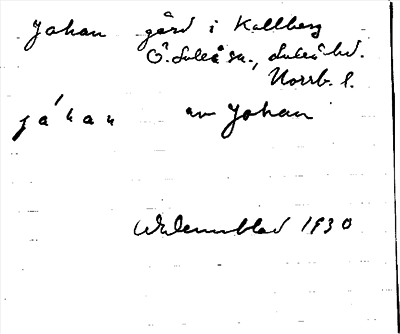 Johan gård i Kallberg
Ö. Luleå sn., Luleå hd.
Norrb. l.
jáhan av Johan
Wilennblad 1930